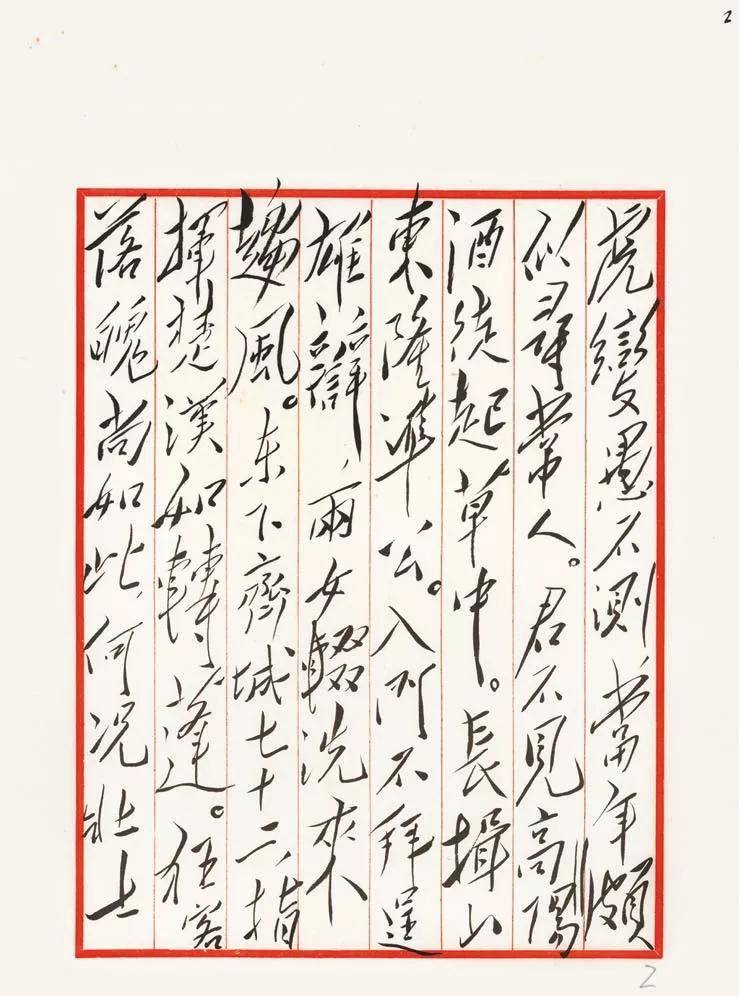 2
虎變愚不測當年頗
似尋常人。君不見高陽
酒徒起草中。長揖山
東隆準公。入門不拜逞
雄辯,兩女輟洗來
趨風。东下齊城七十二,指
揮楚漢如轉蓬。狂客
落魄尚如此,何況壯士
2